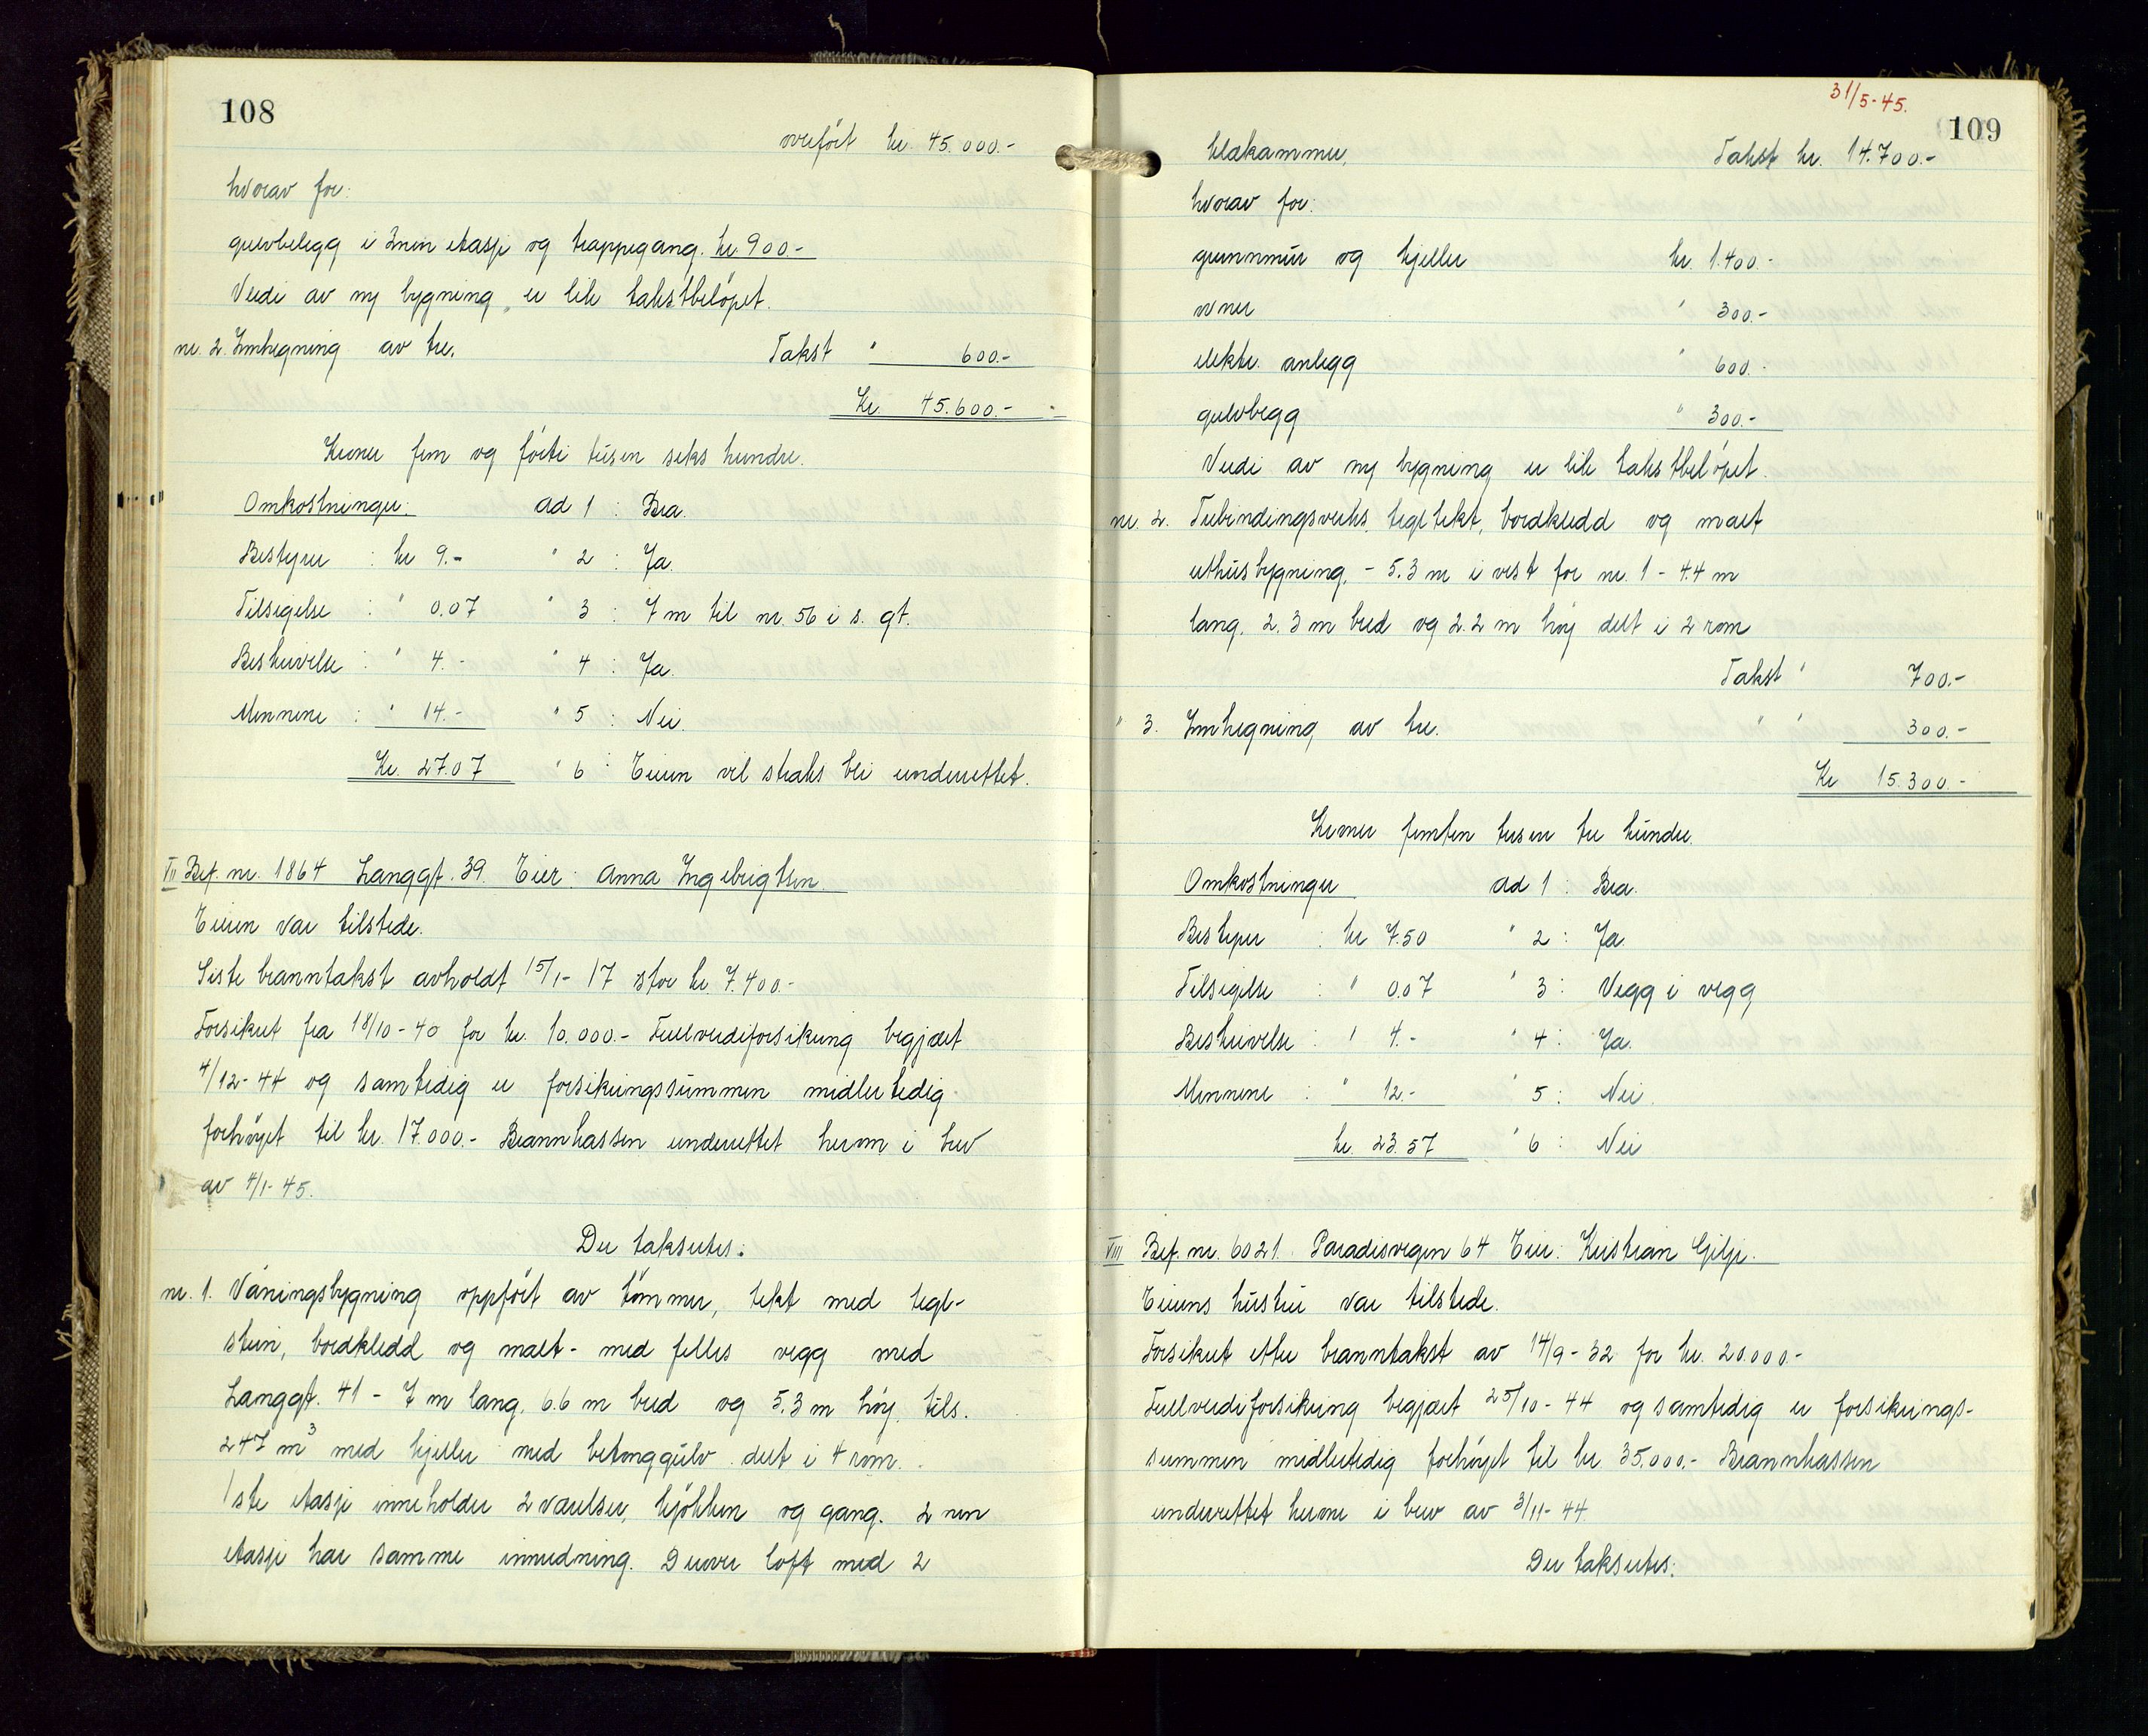 108
overført kr. 45.000.-
hvorav for:
gulvbelegg i 3nen etasje og trappegang. kr. 900.-
Verdi av ny bygning er lik takstbeløpet.
nr. 2. Innhegning av tre. Takst " 600.-
Kr. 45.600.-
Kroner fem og førti tusen seks hundre.
Omkostninger: ad 1 : Bra.
Bestyrer : kr 9.- " 2 : Ja.
Tilsigelse : " 0.07 " 3 : 7 m til nr. 56 i s. gt.
Beskrivelse : " 4.- " 4 : Ja.
Mennene : " 14.- " 5 : Nei.
Kr. 27.07 " 6 : Eieren vil straks bli underrettet.
VII Bef. nr. 1864 Langgt. 39. Eier: Anna Ingebrigtsen.
Eieren var tilstede.
Siste branntakst avholdt 15/1-17 stor kr. 7.400.-
Forsikret fra 18/10-40 for kr. 10.000.- Fullverdiforsikring begjært
4/12-44 og samtidig er forsikringssummen midlertidig
forhøyet til kr. 17.000.- Brannkassen underrettet herom i brev
av 4/1-45.
Der takseres:
nr. 1. Våningsbygning oppført av tømmer, tekt med tegl-
stein, bordkledd og malt - med felles vegg med
Langgt. 41 - 7 m lang, 6.6 m bred og 5.3 m høy, tils.
247 m³ med kjeller med betonggulv delt i 4 rom.
1ste etasje inneholder 2 værelser, kjøkken og gang. 2 nen
etasje har samme innredning. Derover loft med 2
31/5-45.
109
klekammer. Takst kr. 14.700.-
hvorav for:
grunnmur og kjeller kr. 1.400.-
ovner " 300.-
elektr. anlegg " 600.-
gulvbegg " 300.-
Verdi av ny bygning er lik takstbeløpet.
nr. 2. Trebindingsverks, tegltekt, bordkledd og malt
uthusbygning, - 5.3 m i vest for nr. 1 - 4.4 m
lang, 2.3 m bred og 2.2 m høy delt i 2 rom
Takst " 700.-
" 3. Innhegning av tre. " " 300.-
Kr 15.300.-
Kroner femten tusen tre hundre.
Omkostninger ad 1 : Bra.
Bestyrer : kr 7.50 " 2 : Ja.
Tilsigelse : " 0.07 " 3 : Vegg i vegg
Beskrivelse : " 4.- " 4 : Ja.
Mennene : " 12.- " 5 : Nei.
kr. 23.57 " 6 : Nei
VIII Bef. nr. 6021. Paradisvegen 64 Eier: Kristian Gilje.
Eierens hustru var tilstede.
Forsikret etter branntakst av 14/9-32 for kr. 20.000.-
Fullverdiforsikring begjært 25/10-44 og samtidig er forsikrings-
summen midlertidig forhøyet til kr 35.000.- Brannkassen
underrettet herom i brev av 3/11-44.
Der takseres: